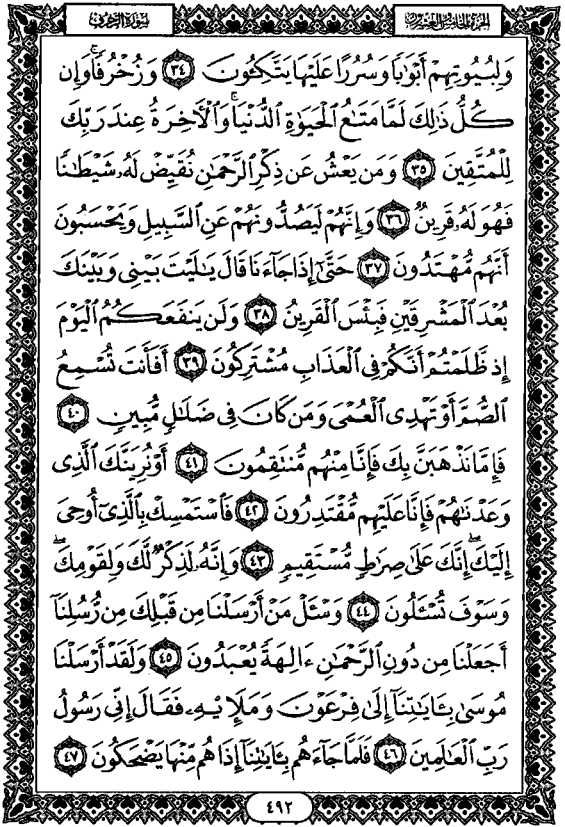 الجزء الخامس والعشرون سورة الزخرف
وَلِبُيُوتِهِمْ أَبْوَٰبًا وَسُرُرًا عَلَيْهَا يَتَّكِـُٔونَ ٣٤ وَزُخْرُفًا ۚ وَإِن
كُلُّ ذَٰلِكَ لَمَّا مَتَـٰعُ ٱلْحَيَوٰةِ ٱلدُّنْيَا ۚ وَٱلْـَٔاخِرَةُ عِندَ رَبِّكَ
لِلْمُتَّقِينَ ٣٥ وَمَن يَعْشُ عَن ذِكْرِ ٱلرَّحْمَـٰنِ نُقَيِّضْ لَهُۥ شَيْطَـٰنًا
فَهُوَ لَهُۥ قَرِينٌ ٣٦ وَإِنَّهُمْ لَيَصُدُّونَهُمْ عَنِ ٱلسَّبِيلِ وَيَحْسَبُونَ
أَنَّهُم مُّهْتَدُونَ ٣٧ حَتَّىٰٓ إِذَا جَآءَنَا قَالَ يَـٰلَيْتَ بَيْنِى وَبَيْنَكَ
بُعْدَ ٱلْمَشْرِقَيْنِ فَبِئْسَ ٱلْقَرِينُ ٣٨ وَلَن يَنفَعَكُمُ ٱلْيَوْمَ
إِذ ظَّلَمْتُمْ أَنَّكُمْ فِى ٱلْعَذَابِ مُشْتَرِكُونَ ٣٩ أَفَأَنتَ تُسْمِعُ
ٱلصُّمَّ أَوْ تَهْدِى ٱلْعُمْىَ وَمَن كَانَ فِى ضَلَـٰلٍ مُّبِينٍ ٤٠
فَإِمَّا نَذْهَبَنَّ بِكَ فَإِنَّا مِنْهُم مُّنتَقِمُونَ ٤١ أَوْ نُرِيَنَّكَ ٱلَّذِى
وَعَدْنَـٰهُمْ فَإِنَّا عَلَيْهِم مُّقْتَدِرُونَ ٤٢ فَٱسْتَمْسِكْ بِٱلَّذِىٓ أُوحِىَ
إِلَيْكَ ۖ إِنَّكَ عَلَىٰ صِرَٰطٍ مُّسْتَقِيمٍ ٤٣ وَإِنَّهُۥ لَذِكْرٌ لَّكَ وَلِقَوْمِكَ ۖ
وَسَوْفَ تُسْـَٔلُونَ ٤٤ وَسْـَٔلْ مَنْ أَرْسَلْنَا مِن قَبْلِكَ مِن رُّسُلِنَآ
أَجَعَلْنَا مِن دُونِ ٱلرَّحْمَـٰنِ ءَالِهَةً يُعْبَدُونَ ٤٥ وَلَقَدْ أَرْسَلْنَا
مُوسَىٰ بِـَٔايَـٰتِنَآ إِلَىٰ فِرْعَوْنَ وَمَلَإِي۟هِۦ فَقَالَ إِنِّى رَسُولُ
رَبِّ ٱلْعَـٰلَمِينَ ٤٦ فَلَمَّا جَآءَهُم بِـَٔايَـٰتِنَآ إِذَا هُم مِّنْهَا يَضْحَكُونَ ٤٧
٤٩٢